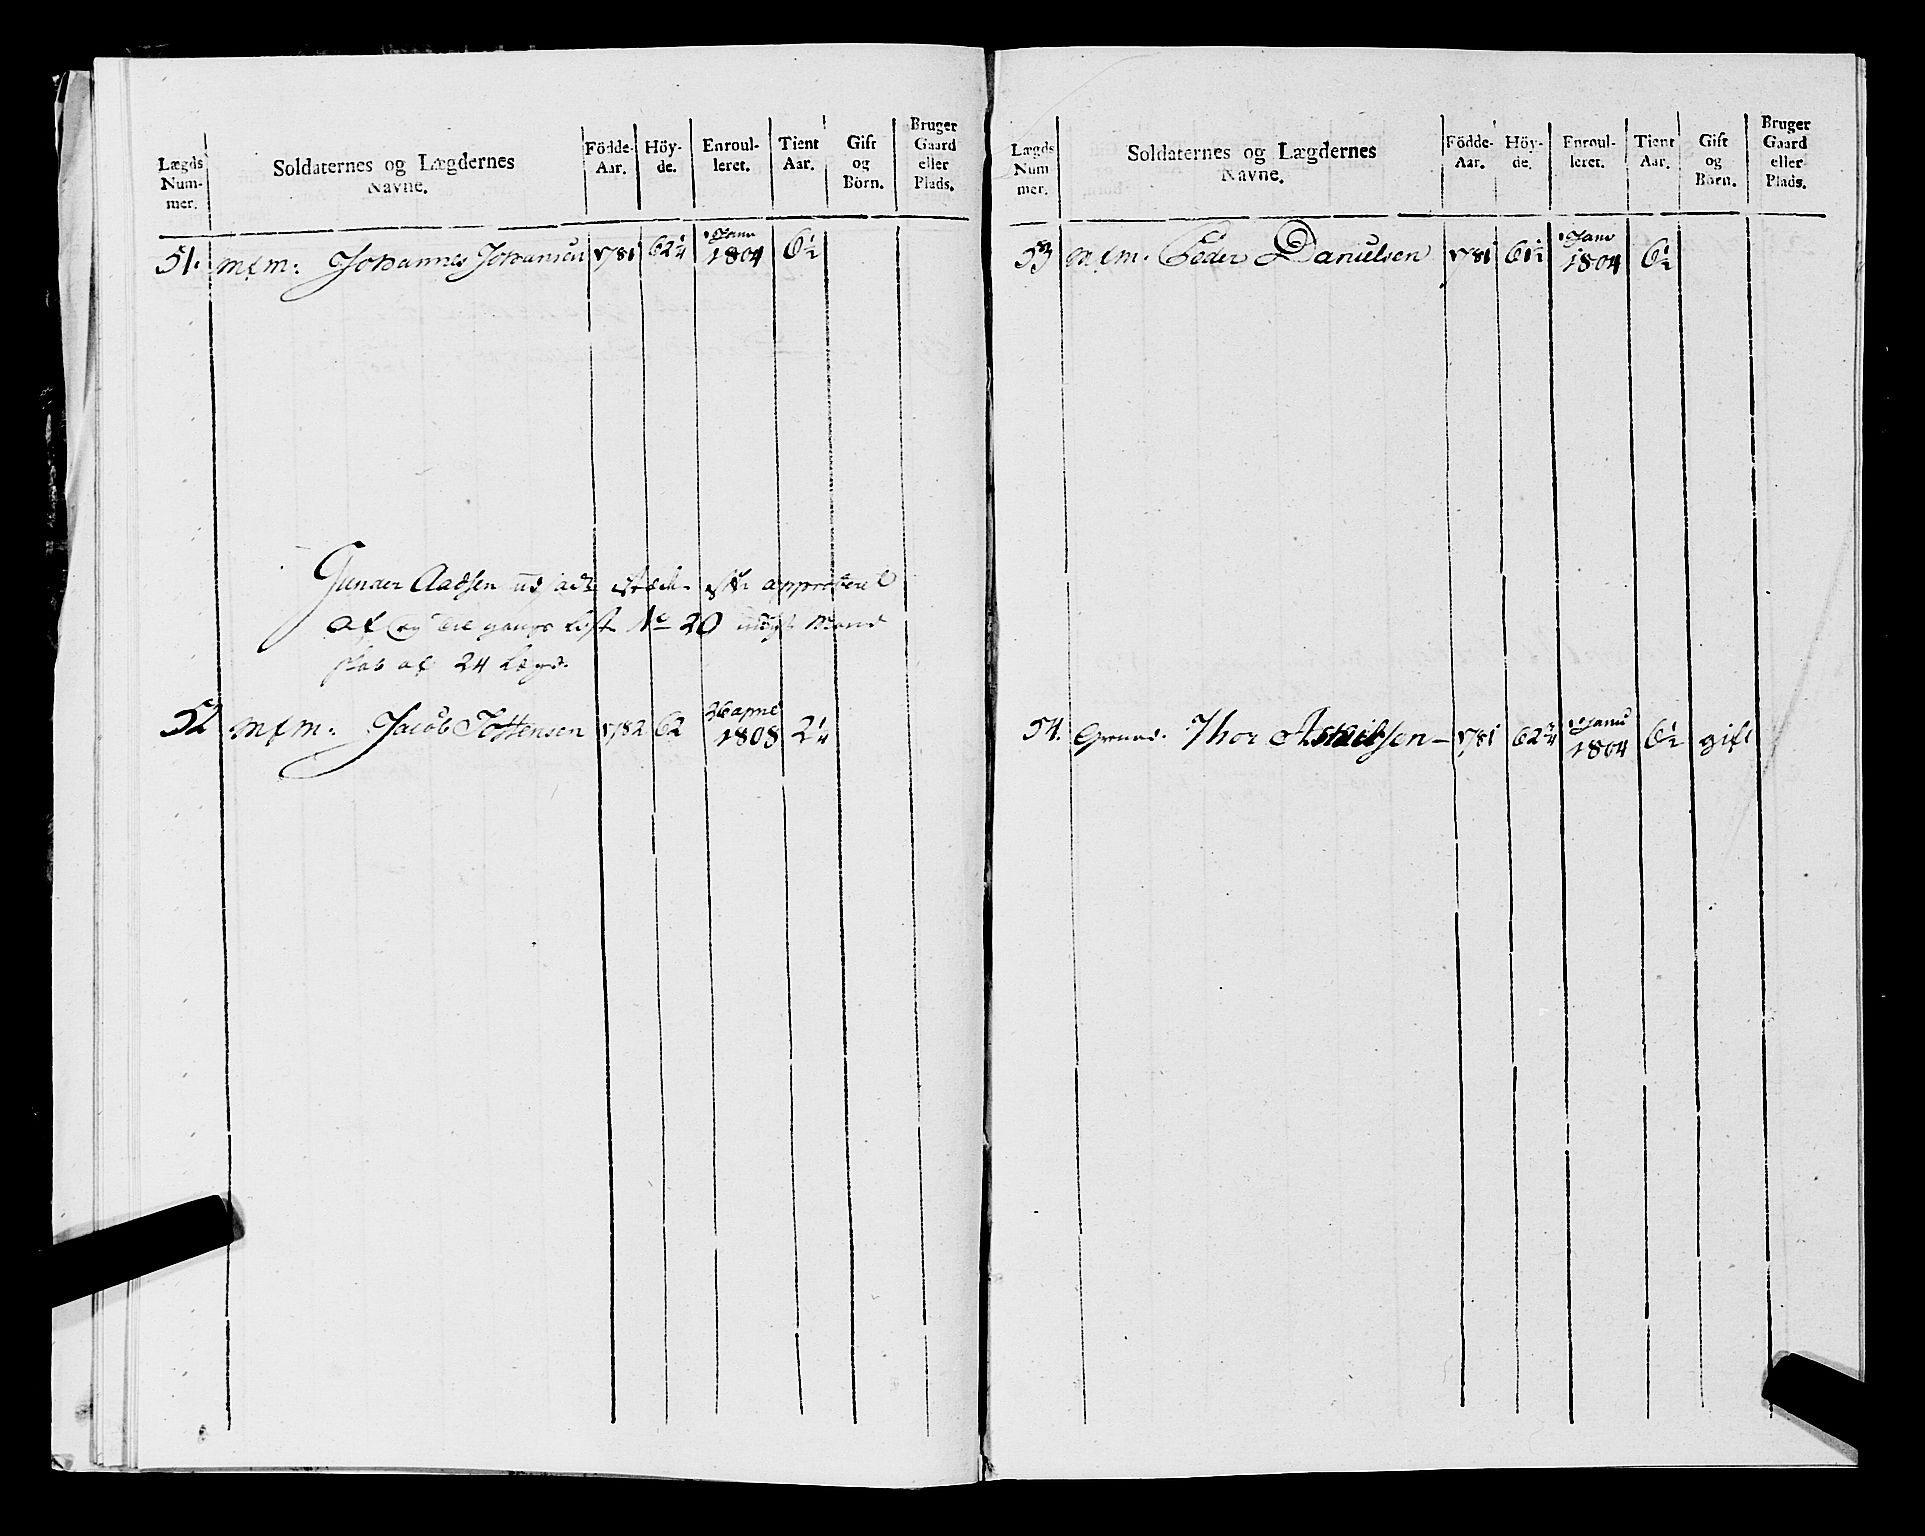 Lægds Num- mer. | Soldaternes og Lægdernes Navne. | Födde- Aar. | Höy- de. | Enroul- leret. | Tient Aar. | Gift og Börn. | Bruger Gaard eller Plads.
51. mfm: Johannes Johansen 1781 62¼ 1 Janu 1804 6½
Gunder Aadsen
No 20
af 24 Lægd.
52 mfm: Jacob Tostensen 1782 62 26 april 1808 2¼
Lægds Num mer. | Soldaternes og Lægdernes Navne. | Födde- Aar. | Höy- de. | Enroul- leret. | Tient Aar. | Gift og Börn. | Bruger Gaard eller Plads.
53 mfm. Peder Danielsen 1781 61½ 1 Janu 1804 6½
54. Grenad. Thor 1781 1 Janu 1804 6½ gift